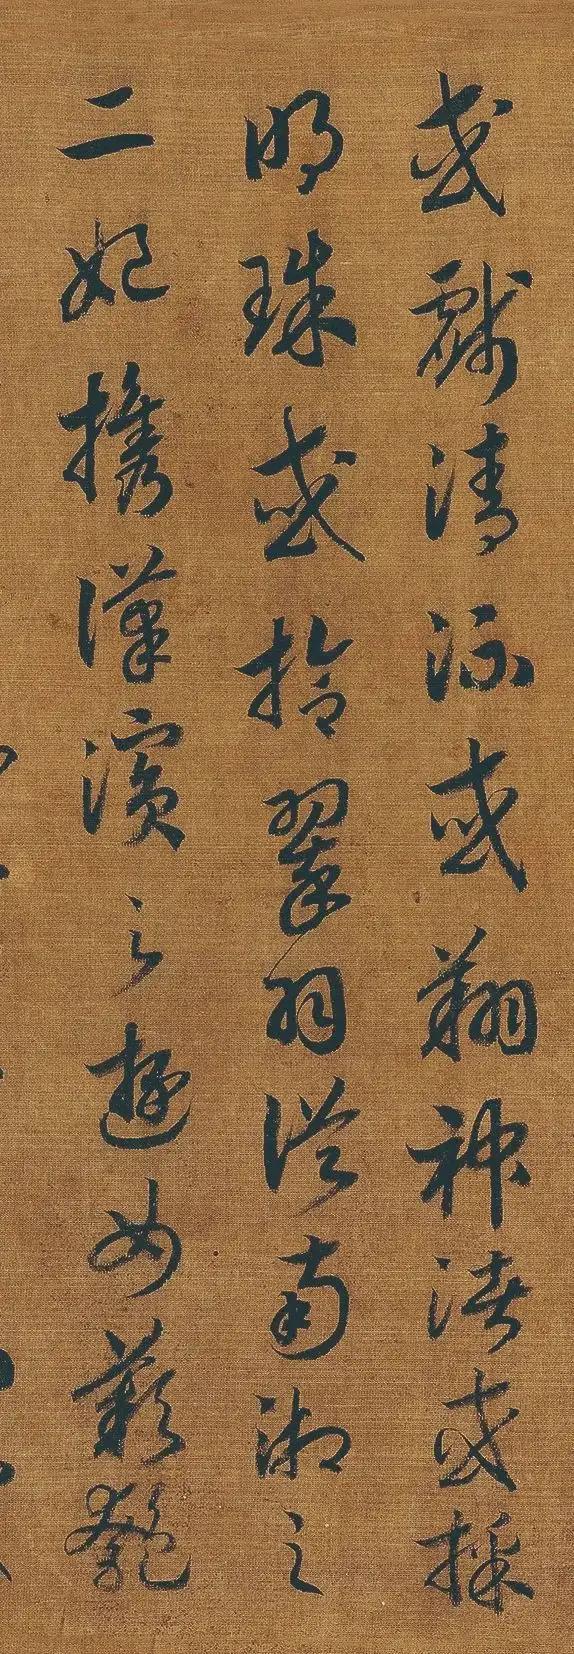 或戲清流或翔神渚或採
明珠或拾翠羽從南湘之
二妃攜漢濱之遊女歎匏